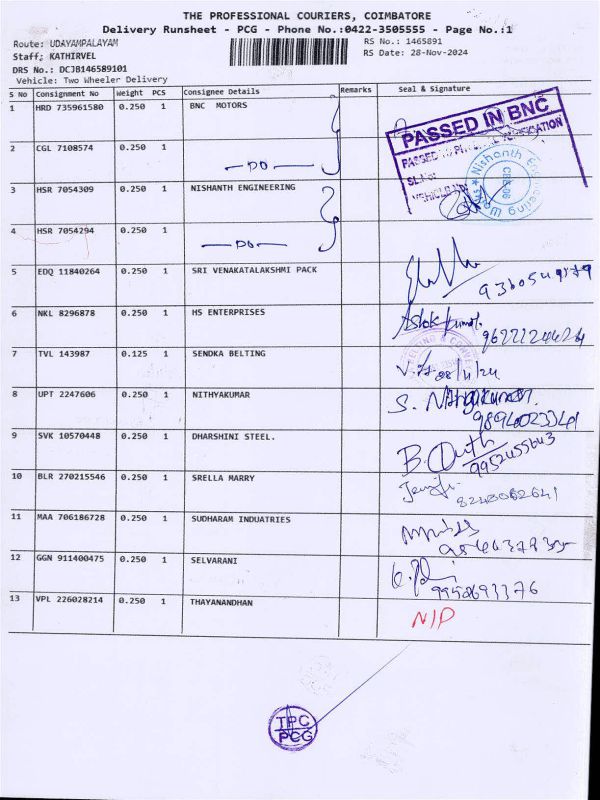 THE PROFESSIONAL COURIERS, COIMBATORE
Delivery Runsheet - PCG - Phone No.:0422-3505555 - Page No.:1
Route: UDAYAMPALAYAM RS No.: 1465891
Staff; KATHIRVEL RS Date: 28-Nov-2024
DRS No.: DCJB146589101
Vehicle: Two Wheeler Delivery
S No Consignment No Weight PCS Consignee Details Remarks Seal & Signature
1 HRD 735961580 0.250 1 BNC MOTORS
PASSED IN BNC
2 CGL 7108574 0.250 1 -DO-
3 HSR 7054309 0.250 1 NISHANTH ENGINEERING
Nishanth Engineering
CBE-06
4 HSR 7054294 0.250 1 -DO-
5 EDQ 11840264 0.250 1 SRI VENAKATALAKSHMI PACK
6 NKL 8296878 0.250 1 HS ENTERPRISES Ashok kumar
7 TVL 143987 0.125 1 SENDKA BELTING 28/11/24
8 UPT 2247606 0.250 1 NITHYAKUMAR S. Nithyakumar
98940023341
9 SVK 10570448 0.250 1 DHARSHINI STEEL.
9952455643
10 BLR 270215546 0.250 1 SRELLA MARRY
8248062641
11 MAA 706186728 0.250 1 SUDHARAM INDUATRIES
12 GGN 911400475 0.250 1 SELVARANI
13 VPL 226028214 0.250 1 THAYANANDHAN N/P
TPC
PCG